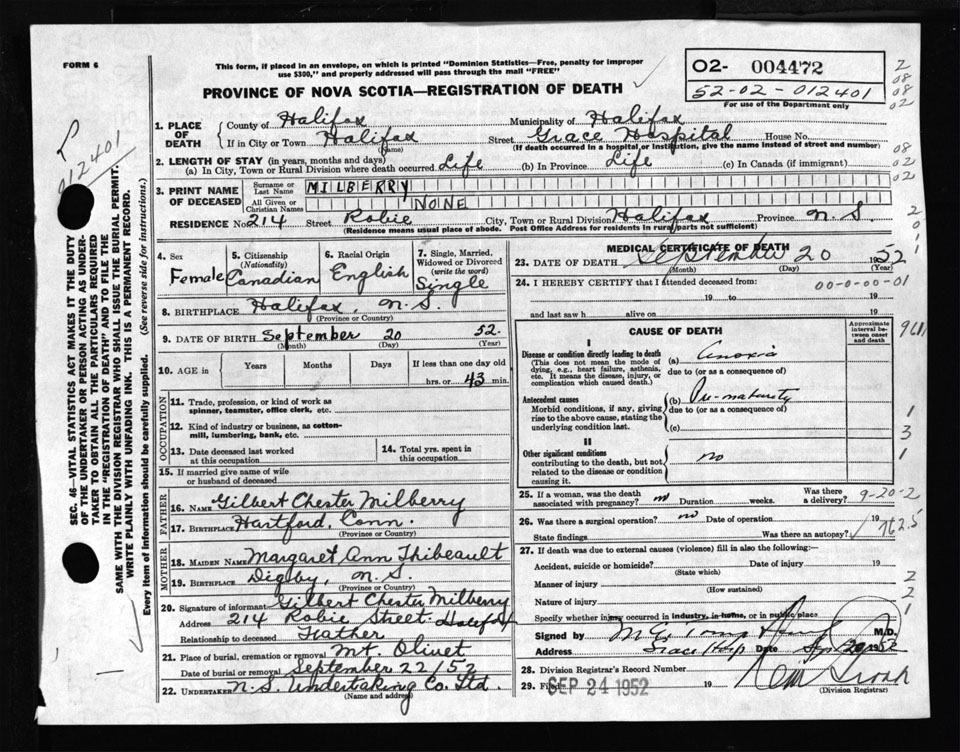 FORM 6
This form, if placed in an envelope, on which is printed "Dominion Statistics—Free, penalty for improper
use $300," and properly addressed will pass through the mail "FREE"
PROVINCE OF NOVA SCOTIA—REGISTRATION OF DEATH
O2- 004472
52-02-012401
For use of the Department only
2
08
02
012401
SEC. 46—VITAL STATISTICS ACT MAKES IT THE DUTY
OF THE UNDERTAKER OR PERSON ACTING AS UNDER-
TAKER TO OBTAIN ALL THE PARTICULARS REQUIRED
IN THE "REGISTRATION OF DEATH" AND TO FILE THE
SAME WITH THE DIVISION REGISTRAR WHO SHALL ISSUE THE BURIAL PERMIT.
WRITE PLAINLY WITH UNFADING INK. THIS IS A PERMANENT RECORD.
Every item of information should be carefully supplied. (See reverse side for instructions.)
1. PLACE OF DEATH
County of Halifax Municipality of Halifax
If in City or Town Halifax Street Grace Hospital House No.
(Name) (If death occurred in a hospital or institution, give the name instead of street and number)
2. LENGTH OF STAY (in years, months and days)
(a) In City, Town or Rural Division where death occurred Life (b) In Province Life (c) In Canada (if immigrant)
08
02
02
3. PRINT NAME OF DECEASED
Surname or Last Name MILBERRY
All Given or Christian Names NONE
RESIDENCE No. 214 Street Robie City, Town or Rural Division Halifax Province N.S.
(Residence means usual place of abode. Post Office Address for residents in rural parts not sufficient)
2
0
1
1
4. Sex Female
5. Citizenship (Nationality) Canadian
6. Racial Origin English
7. Single, Married, Widowed or Divorced (write the word) Single
8. BIRTHPLACE Halifax, N.S.
(Province or Country)
9. DATE OF BIRTH September 20 52.
(Month) (Day) (Year)
10. AGE in Years Months Days If less than one day old
hrs. or 43 min.
OCCUPATION
11. Trade, profession, or kind of work as
spinner, teamster, office clerk, etc.
12. Kind of industry or business, as cotton-
mill, lumbering, bank, etc.
13. Date deceased last worked
at this occupation
14. Total yrs. spent in
this occupation
15. If married give name of wife
or husband of deceased
FATHER
16. NAME Gilbert Chester Milberry
17. BIRTHPLACE Hartford, Conn.
(Province or Country)
MOTHER
18. MAIDEN NAME Margaret Ann Thibeault
19. BIRTHPLACE Digby, N.S.
(Province or Country)
20. Signature of informant Gilbert Chester Milberry
Address 214 Robie Street Halifax
Relationship to deceased Father
21. Place of burial, cremation or removal Mt. Olivet
Date of burial or removal September 22/52
22. UNDERTAKER N.S. Undertaking Co. Ltd.
(Name and address)
MEDICAL CERTIFICATE OF DEATH
23. DATE OF DEATH September 20 1952
(Month) (Day) (Year)
24. I HEREBY CERTIFY that I attended deceased from:
00-0-00-01
19 to 19
and last saw h alive on 19
CAUSE OF DEATH
Approximate interval between onset and death
I
Disease or condition directly leading to death (a) Anoxia
(This does not mean the mode of dying, e.g., heart failure, asthenia, etc. It means the disease, injury, or complication which caused death.)
due to (or as a consequence of)
Antecedent causes (b) Pre-maturity
Morbid conditions, if any, giving rise to the above cause, stating the underlying condition last.
due to (or as a consequence of)
(c)
1
3
1
II
Other significant conditions no
contributing to the death, but not related to the disease or condition causing it.
25. If a woman, was the death
associated with pregnancy? no Duration weeks. Was there a delivery?
9-20-2
26. Was there a surgical operation? no Date of operation 19
State findings Was there an autopsy?
762.5
27. If death was due to external causes (violence) fill in also the following:—
Accident, suicide or homicide? Date of injury 19
(State which)
Manner of injury
(How sustained)
Nature of injury
Specify whether injury occurred in industry, in home, or in public place
2
2
1
Signed by M.D.
Address Grace Hosp Date 1952
28. Division Registrar's Record Number
29. Filed SEP 24 1952 19
(Division Registrar)